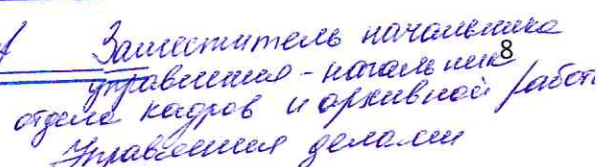 Заместитель начальника
8
управления - начальник
отдела кадров и архивной работы
Управления делами